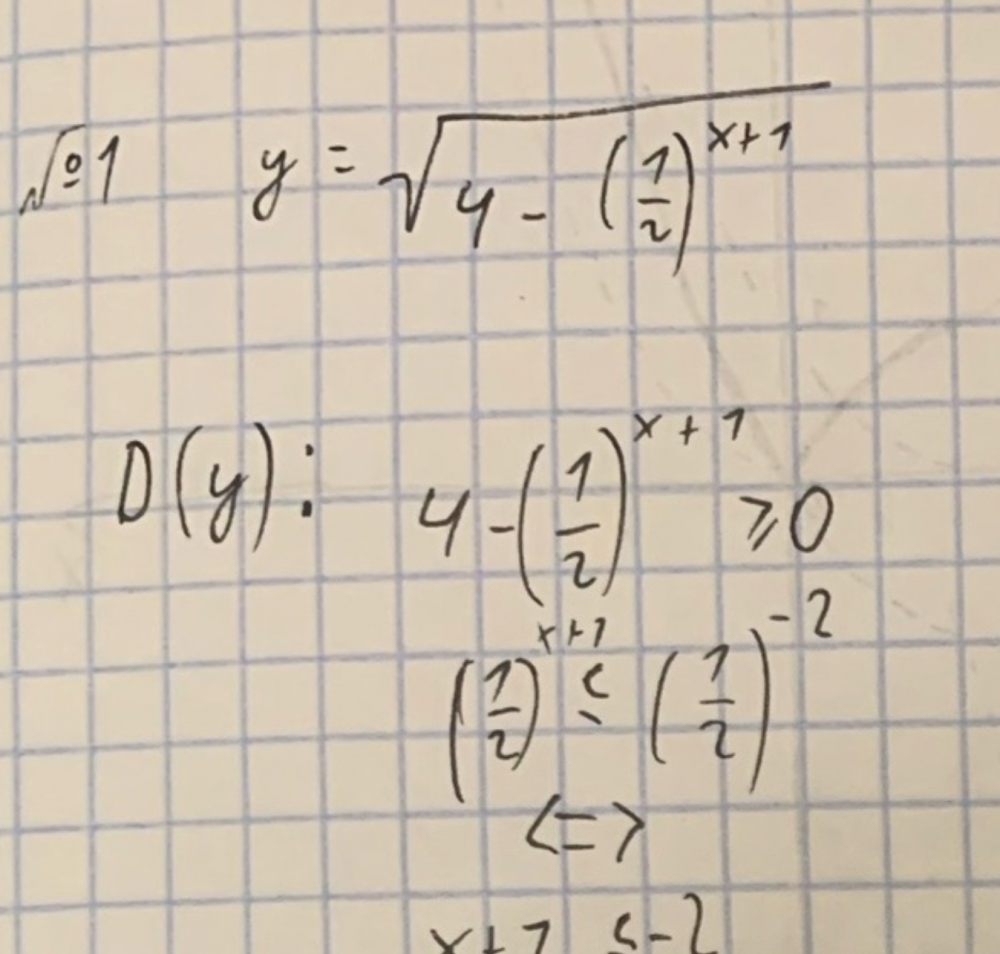 №1 y = √(4 - (1/2)^(x+1))
D(y): 4 - (1/2)^(x+1) ⩾ 0
(1/2)^(x+1) ≤ (1/2)^(-2)
<=>
x+1 ≤ -2